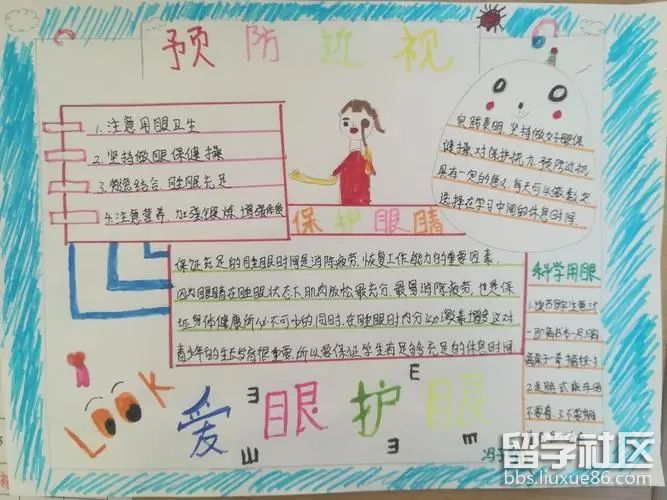 预防近视
1. 注意用眼卫生
2. 坚持做眼保健操
3. 劳逸结合,睡眠充足
4. 注意营养,加强锻炼,增强体质
实践表明,坚持做好眼保
健操,对保护视力,预防近视
具有一定的意义,每天可以做数次
选择在学习中间的休息时间
保护眼睛
保证充足的睡眠时间是消除疲劳,恢复工作能力的重要因素.
因为眼睛在睡眠状态下,肌肉放松最充分,最易消除疲劳,也是保
证身体健康所必不可少的同时,在睡眠时内分泌激素增多这对
青少年的生长发育很重要,所以要保证学生有足够充足的休息时间
科学用眼
一即离书本一尺
2. 走路或乘车
不要看,3. 不要
LOOK
爱眼护眼
E
E
E
E
E
留学社区
bbs.liuxue86.com